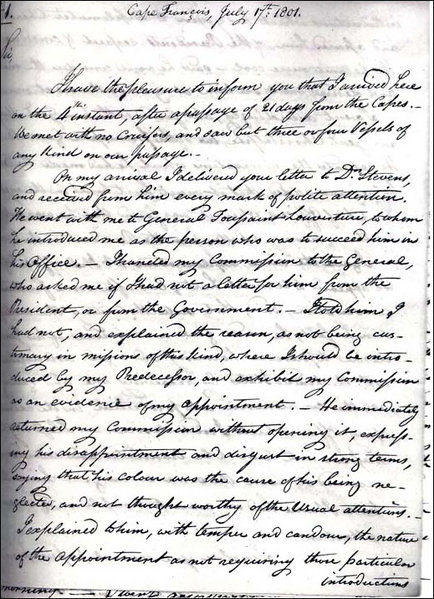 1.
Cape François, July 17th: 1801.
Sir,
I have the pleasure to inform you that I arrived here
on the 4th instant, after a passage of 21 days from the Capes.—
We met with no Cruisers, and saw but three or four Vessels of
any Kind on our passage.—
On my arrival I delivered your letter to Dr. Stevens,
and received from him every mark of polite attention.
He went with me to General Toussaint Louverture, to whom
he introduced me as the person who was to succeed him in
his Office.— I handed my Commission to the General,
who asked me if I had not a letter for him from the
President, or from the Government.— I told him I
had not, and explained the reason, as not being cus-
tomary in missions of this Kind, where I should be intro-
duced by my Predecessor, and exhibit my Commission
as an evidence of my appointment.— He immediately
returned my Commission without opening it, express-
ing his disappointment and disgust in strong terms,
saying that his colour was the cause of his being ne-
glected, and not thought worthy of the Usual attentions.—
I explained to him, with temper and candour, the nature
of the appointment as not requiring those particular
introductions
morning —